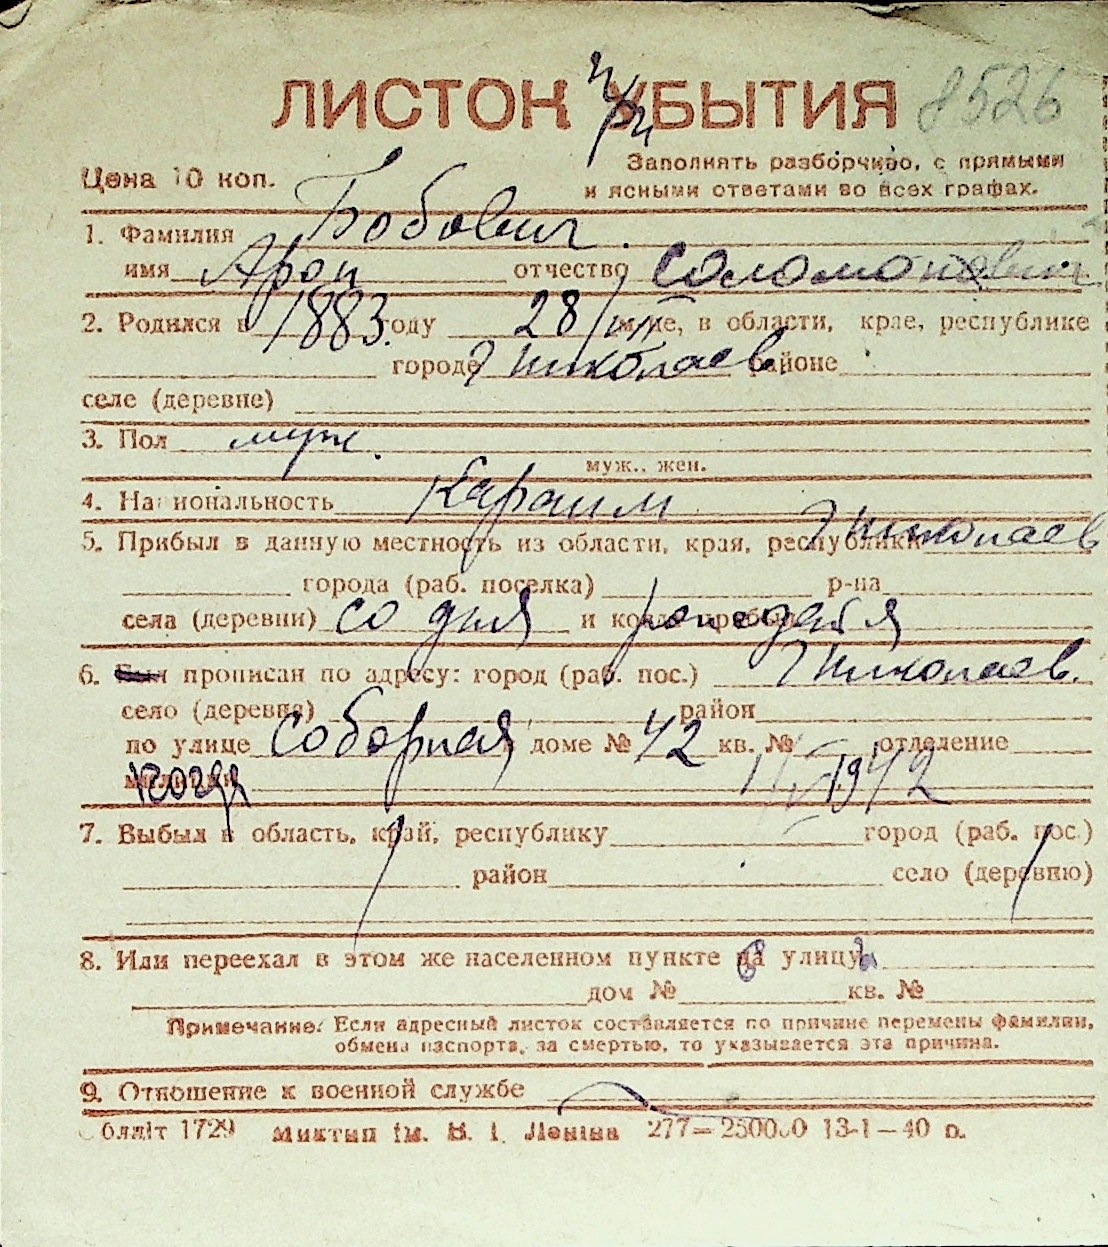 ЛИСТОК УБЫТИЯ 8526
Цена 10 коп.
Заполнять разборчиво, с прямыми
и ясными ответами во всех графах.
1. Фамилия Бобович.
имя Арон отчество Соломонович
2. Родился в 1883. году 28/ м-це, в области, крае, республике
городе Николаев районе
селе (деревне)
3. Пол муж.
муж., жен.
4. Национальность Караим
5. Прибыл в данную местность из области, края, республики Николаев
города (раб. поселка) р-на
села (деревни) со дня и когда прибыл рождения
6. Был прописан по адресу: город (раб. пос.) Николаев.
село (деревня) район
по улице Соборная доме № 42 кв. № отделение
милиции когда 1942
7. Выбыл в область, край, республику город (раб. пос.)
район село (деревню)
8. Или переехал в этом же населенном пункте на улицу
дом № кв. №
Примечание: Если адресный листок составляется по причине перемены фамилии,
обмена паспорта, за смертью, то указывается эта причина.
9. Отношение к военной службе
Облліт 1729 Миктип ім. В. І. Леніна 277—250000 13-1—40 р.